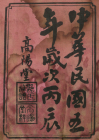 中華民國五
年歲次丙辰
高陽堂